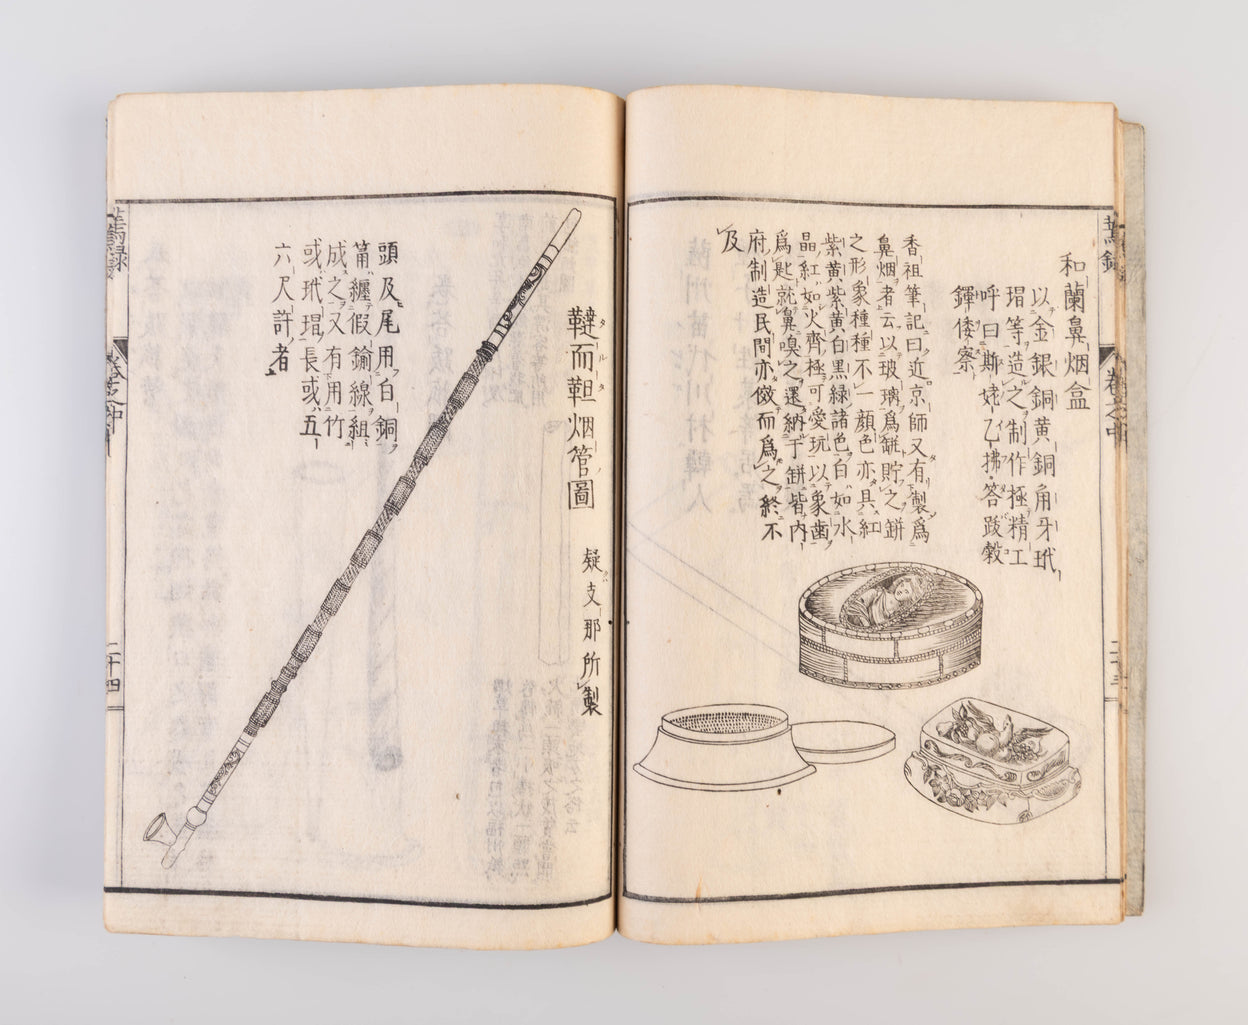 和蘭鼻烟盒
以金銀銅黄銅角牙玳
瑁等造之制作極精工
呼曰斯姥乙拂答跋穀
鐸倭察
香祖筆記曰近京師又有製為
鼻烟者云以玻璃為缾貯之缾
之形象種種不一顔色亦具紅
紫黄白黒緑諸色白如水
晶紅如火齊極可愛玩以象齒
為匙就鼻嗅之還納于缾皆内
府制造民間亦倣而為之終不
及
韃而靼烟管圖
疑支那所製
頭及尾用白銅
筩纏假鍮線組
成之又有用竹
或玳瑁長或五
六尺許者
蔫録
卷之中
二十四